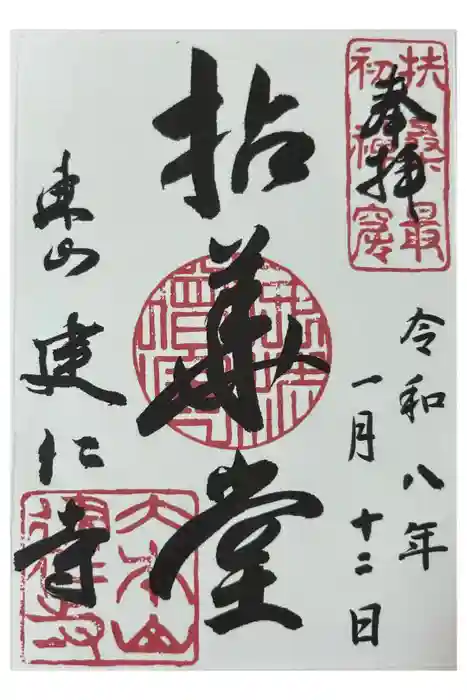 扶桑最
初禪窟
奉拝
令和八年
一月十二日
拈華堂
東山
建仁寺
大本山